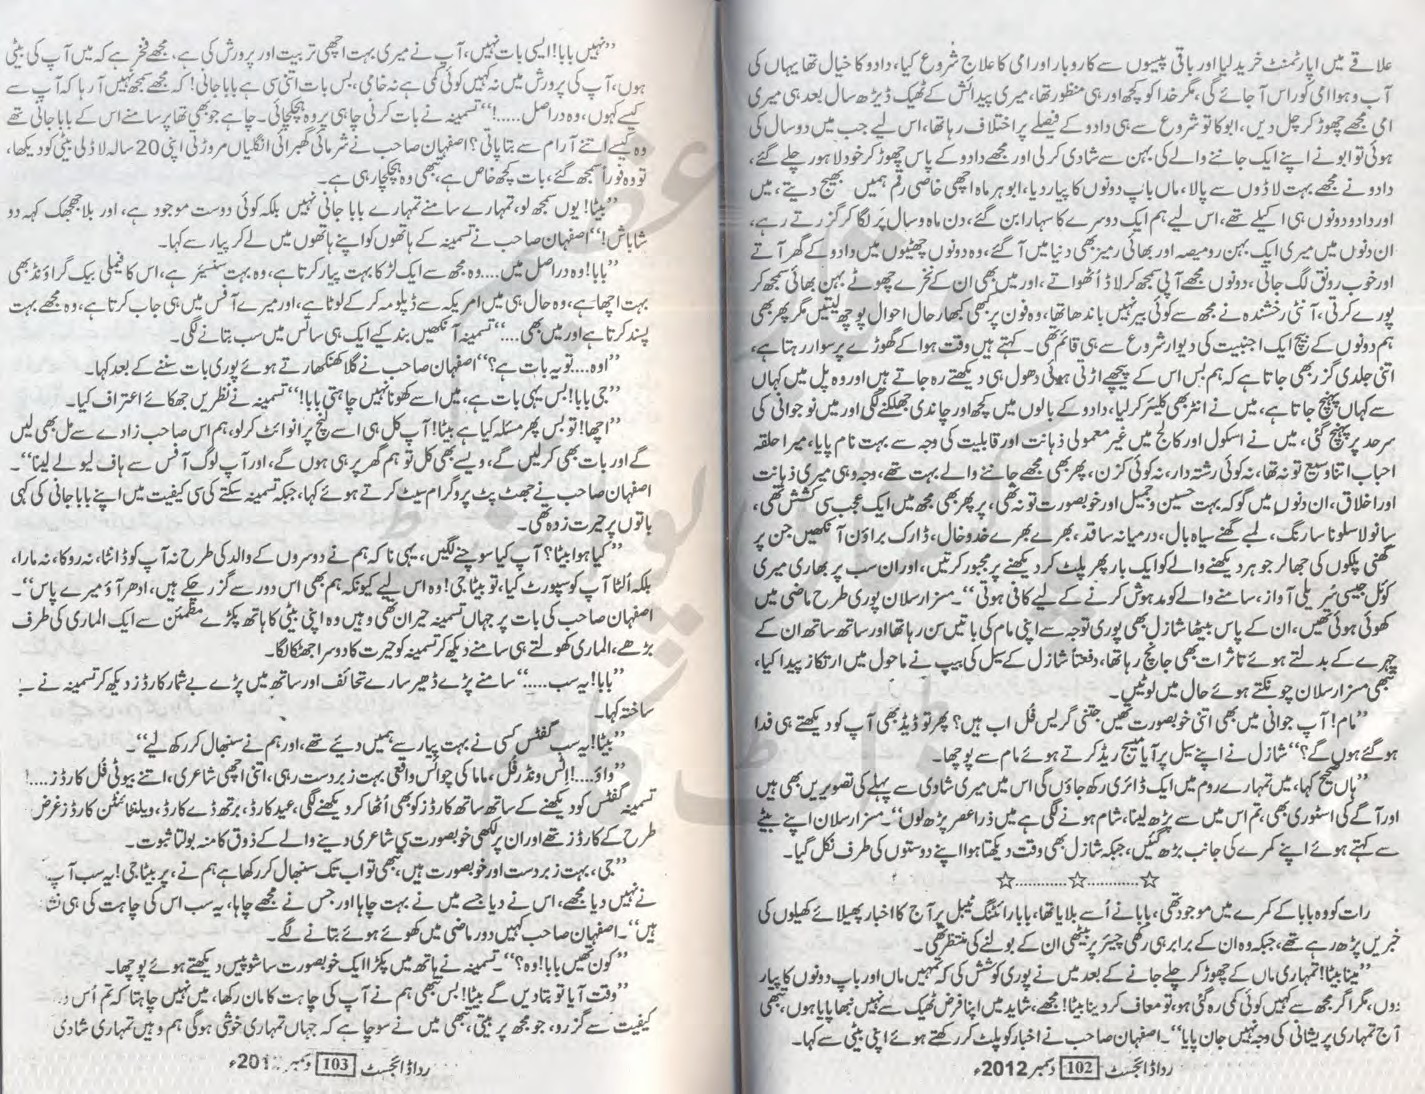 علاقے میں اپارٹمنٹ خرید لیا اور باقی پیسوں سے کاروبار اور امی کا علاج شروع کیا، دادو کا خیال تھا یہاں کی
آب و ہوا امی کو راس آ جائے گی، مگر خدا کو کچھ اور ہی منظور تھا، میری پیدائش کے ٹھیک ڈیڑھ سال بعد ہی میری
امی مجھے چھوڑ کر چل دیں، ابو کا تو شروع سے ہی دادو کے فیصلے پر اختلاف رہا تھا، اس لیے جب میں دو سال کی
ہوئی تو ابو نے اپنے ایک جاننے والے کی بہن سے شادی کر لی اور مجھے دادو کے پاس چھوڑ کر خود لاہور چلے گئے،
دادو نے مجھے بہت لاڈوں سے پالا، ماں باپ دونوں کا پیار دیا، ابو ہر ماہ اچھی خاصی رقم ہمیں بھیج دیتے، میں
اور دادو دونوں ہی اکیلے تھے، اس لیے ہم ایک دوسرے کا سہارا بن گئے، دن ماہ و سال پر لگا کر گزرتے رہے،
ان دنوں میں میری ایک بہن رومیصہ اور بھائی رمیز بھی دنیا میں آ گئے، وہ دونوں چھٹیوں میں دادو کے گھر آتے
اور خوب رونق لگ جاتی، دونوں مجھے آپی سمجھ کر لاڈ اُٹھواتے، اور میں بھی ان کے نخرے چھوٹے بہن بھائی سمجھ کر
پورے کرتی، آنٹی رخشندہ نے مجھ سے کوئی بیر نہیں باندھا تھا، وہ فون پر بھی کبھار حال احوال پوچھ لیتیں مگر پھر بھی
ہم دونوں کے بیچ ایک اجنبیت کی دیوار شروع سے ہی قائم تھی۔ کہتے ہیں وقت ہوا کے گھوڑے پر سوار رہتا ہے،
اتنی جلدی گزر بھی جاتا ہے کہ ہم بس اس کے پیچھے اڑتی ہوئی دھول ہی دیکھتے رہ جاتے ہیں اور وہ پل میں کہاں
سے کہاں پہنچ جاتا ہے، میں نے انٹر بھی کلیئر کر لیا، دادو کے بالوں میں کچھ اور چاندی جھلکنے لگی اور میں نوجوانی کی
سرحد پر پہنچ گئی، میں نے اسکول اور کالج میں غیر معمولی ذہانت اور قابلیت کی وجہ سے بہت نام پایا، میرا حلقہ
احباب اتنا وسیع تو نہ تھا، نہ کوئی رشتہ دار، نہ کوئی کزن، پھر بھی مجھے جاننے والے بہت تھے، وجہ وہی میری ذہانت
اور اخلاق، ان دنوں میں گو کہ بہت حسین و جمیل اور خوبصورت تو نہ تھی، پر پھر بھی مجھ میں ایک عجب سی کشش تھی،
سانولا سلونا سا رنگ، لمبے گھنے سیاہ بال، درمیانہ سا قد، بھرے بھرے خدوخال، ڈارک براؤن آنکھیں جن پر
گھنی پلکوں کی جھالر جو ہر دیکھنے والے کو ایک بار پھر پلٹ کر دیکھنے پر مجبور کرتیں، اور ان سب پر بھاری میری
کوئل جیسی سُریلی آواز، سامنے والے کو مدہوش کرنے کے لیے کافی ہوتی“۔ مسز ارسلان پوری طرح ماضی میں
کھوئی ہوئی تھیں، ان کے پاس بیٹھا شازل بھی پوری توجہ سے اپنی مام کی باتیں سن رہا تھا اور ساتھ ساتھ ان کے
چہرے کے بدلتے ہوئے تاثرات بھی جانچ رہا تھا، دفعتاً شازل کے سیل کی بیپ نے ماحول میں ارتکاز پیدا کیا،
تبھی مسز ارسلان چونکتے ہوئے حال میں لوٹیں۔
”مام! آپ جوانی میں بھی اتنی خوبصورت تھیں جتنی گریس فُل اب ہیں؟ پھر تو ڈیڈ بھی آپ کو دیکھتے ہی فدا
ہو گئے ہوں گے؟“ شازل نے اپنے سیل پر آیا میسج ریڈ کرتے ہوئے مام سے پوچھا۔
”ہاں صحیح کہا، میں تمہارے روم میں ایک ڈائری رکھ جاؤں گی اس میں میری شادی سے پہلے کی تصویریں بھی ہیں
اور آگے کی اسٹوری بھی، تم اس میں سے پڑھ لینا، شام ہونے لگی ہے میں ذرا عصر پڑھ لوں“۔ مسز ارسلان اپنے بیٹے
سے کہتے ہوئے اپنے کمرے کی جانب بڑھ گئیں، جبکہ شازل بھی وقت دیکھتا ہوا اپنے دوستوں کی طرف نکل گیا۔
☆............☆............☆
رات کو وہ بابا کے کمرے میں موجود تھی، بابا نے اُسے بلایا تھا، بابا رائٹنگ ٹیبل پر آج کا اخبار پھیلائے کھیلوں کی
خبریں پڑھ رہے تھے، جبکہ وہ ان کے برابر ہی رکھی چیئر پر بیٹھی ان کے بولنے کی منتظر تھی۔
”مینا بیٹا! تمہاری ماں کے چھوڑ کر چلے جانے کے بعد میں نے پوری کوشش کی کہ تمہیں ماں اور باپ دونوں کا پیار
دوں، مگر اگر مجھ سے کہیں کوئی کمی رہ گئی ہو، تو معاف کر دینا بیٹا! مجھے، شاید میں اپنا فرض ٹھیک سے نہیں نبھا پایا ہوں، تبھی
آج تمہاری پریشانی کی وجہ نہیں جان پایا“۔ اصفہان صاحب نے اخبار کو پلٹ کر رکھتے ہوئے اپنی بیٹی سے کہا۔
رداڈائجسٹ 102 دسمبر 2012ء
”نہیں بابا! ایسی بات نہیں، آپ نے میری بہت اچھی تربیت اور پرورش کی ہے، مجھے فخر ہے کہ میں آپ کی بیٹی
ہوں، آپ کی پرورش میں نہ کہیں کوئی کمی ہے نہ خامی، بس بات اتنی سی ہے بابا جانی! کہ مجھے سمجھ نہیں آ رہا کہ آپ سے
کیسے کہوں، وہ دراصل.....!“ تسمینہ نے بات کرنی چاہی پر وہ ہچکچائی۔ چاہے جو بھی تھا پر سامنے اس کے بابا جانی تھے
وہ کیسے اتنے آرام سے بتا پاتی؟ اصفہان صاحب نے شرماتی گھبراتی انگلیاں مروڑتی اپنی 20 سالہ لاڈلی بیٹی کو دیکھا،
تو وہ فوراً سمجھ گئے، بات کچھ خاص ہے، تبھی وہ ہچکچا رہی ہے۔
”بیٹا! یوں سمجھ لو، تمہارے سامنے تمہارے بابا جانی نہیں بلکہ کوئی دوست موجود ہے، اور بلا جھجھک کہہ دو
شاباش!“ اصفہان صاحب نے تسمینہ کے ہاتھوں کو اپنے ہاتھوں میں لے کر پیار سے کہا۔
”بابا! وہ دراصل میں.... وہ مجھ سے ایک لڑکا بہت پیار کرتا ہے، وہ بہت سنسیئر ہے، اس کا فیملی بیک گراؤنڈ بھی
بہت اچھا ہے، وہ حال ہی میں امریکہ سے ڈپلومہ کر کے لوٹا ہے، اور میرے آفس میں ہی جاب کرتا ہے، وہ مجھے بہت
پسند کرتا ہے اور میں بھی....“ تسمینہ آنکھیں بند کیے ایک ہی سانس میں سب بتانے لگی۔
”اوہ.... تو یہ بات ہے؟“ اصفہان صاحب نے گلا کھنکھارتے ہوئے پوری بات سننے کے بعد کہا۔
”جی بابا! بس یہی بات ہے، میں اسے کھونا نہیں چاہتی بابا!“ تسمینہ نے نظریں جھکائے اعتراف کیا۔
”اچھا! تو بس پھر مسئلہ کیا ہے بیٹا! آپ کل ہی اسے لنچ پر انوائٹ کر لو، ہم اس صاحب زادے سے مل بھی لیں
گے اور بات بھی کر لیں گے، ویسے بھی کل تو ہم گھر پر ہی ہوں گے، اور آپ لوگ آفس سے ہاف لیو لے لینا“۔
اصفہان صاحب نے جھٹ پٹ پروگرام سیٹ کرتے ہوئے کہا، جبکہ تسمینہ سکتے کی سی کیفیت میں اپنے بابا جانی کی کہی
باتوں پر حیرت زدہ تھی۔
”کیا ہوا بیٹا؟ آپ کیا سوچنے لگیں، یہی نا کہ ہم نے دوسروں کے والد کی طرح نہ آپ کو ڈانٹا، نہ روکا، نہ مارا،
بلکہ اُلٹا آپ کو سپورٹ کیا، تو بیٹا جی! وہ اس لیے کیونکہ ہم بھی اس دور سے گزر چکے ہیں، ادھر آؤ میرے پاس“۔
اصفہان صاحب کی بات پر جہاں تسمینہ حیران تھی وہیں وہ اپنی بیٹی کا ہاتھ پکڑے مطمئن سے ایک الماری کی طرف
بڑھے، الماری کھولتے ہی سامنے دیکھ کر تسمینہ کو حیرت کا دوسرا جھٹکا لگا۔
”بابا! یہ سب.....“ سامنے پڑے ڈھیر سارے تحائف اور ساتھ میں پڑے بے شمار کارڈز دیکھ کر تسمینہ نے بے
ساختہ کہا۔
”بیٹا! یہ سب گفٹس کسی نے بہت پیار سے ہمیں دیئے تھے، اور ہم نے سنبھال کر رکھ لیے“۔
”واؤ....! اِٹس ونڈرفُل، ماما کی چوائس واقعی بہت زبردست رہی، اتنی اچھی شاعری، اتنے بیوٹی فُل کارڈز....!
تسمینہ گفٹس کو دیکھنے کے ساتھ ساتھ کارڈز کو بھی اُٹھا کر دیکھنے لگی، عید کارڈ، برتھ ڈے کارڈ، ویلنٹائن کارڈز غرض
طرح کے کارڈز تھے اور ان پر لکھی خوبصورت سی شاعری دینے والے کے ذوق کا منہ بولتا ثبوت۔
”جی، بہت زبردست اور خوبصورت ہیں، تبھی تو اب تک سنبھال کر رکھا ہے ہم نے، پر بیٹا جی! یہ سب آپ
نے نہیں دیا مجھے، اس نے دیا جسے میں نے بہت چاہا اور جس نے مجھے چاہا، یہ سب اس کی چاہت کی ہی
ہیں“۔ اصفہان صاحب کہیں دور ماضی میں کھوئے ہوئے بتانے لگے۔
”کون تھیں بابا! وہ؟“۔ تسمینہ نے ہاتھ میں پکڑا ایک خوبصورت سا شوپیس دیکھتے ہوئے پوچھا۔
”وقت آیا تو بتا دیں گے بیٹا! بس تبھی ہم نے آپ کی چاہت کا مان رکھا، میں نہیں چاہتا کہ تم اُس
کیفیت سے گزرو، جو مجھ پر بیتی، تبھی میں نے سوچا ہے کہ جہاں تمہاری خوشی ہوگی ہم وہیں تمہاری شادی
رداڈائجسٹ 103